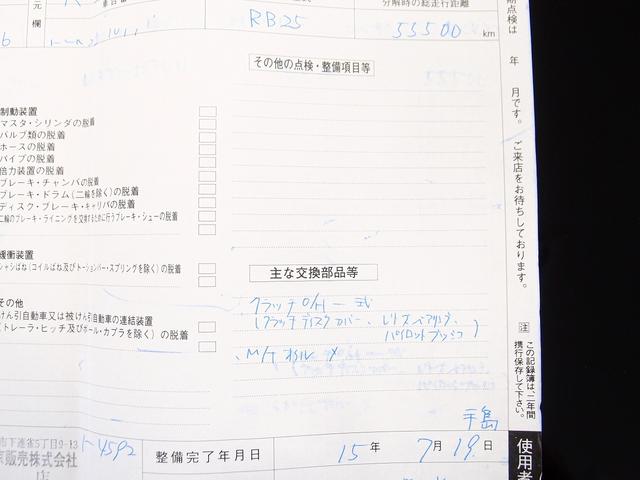 元
欄
RB25
分解時の総走行距離
55500 km
その他の点検・整備項目等
制動装置
マスタ・シリンダの脱着
バルブ類の脱着
ホースの脱着
パイプの脱着
倍力装置の脱着
ブレーキ・チャンバの脱着
ブレーキ・ドラム(二輪を除く)の脱着
ディスク・ブレーキ・キャリパの脱着
二輪のブレーキ・ライニングを交換するために行うブレーキ・シューの脱着
緩衝装置
シャシばね(コイルばね及びトーションバー・スプリングを除く)の脱着
その他
けん引自動車又は被けん引自動車の連結装置
(トレーラ・ヒッチ及びボール・カプラを除く)の脱着
主な交換部品等
クラッチO/H一式
(クラッチディスクカバー、レリーズベアリング、
パイロットブッシュ)
M/Tオイル
手島
市下連雀5丁目9-13
販売株式会社
店
整備完了年月日
15年 7月19日
年 月です。ご来店をお待ちしております。
注 この記録簿は、二年間
携行保存して下さい。
使用者